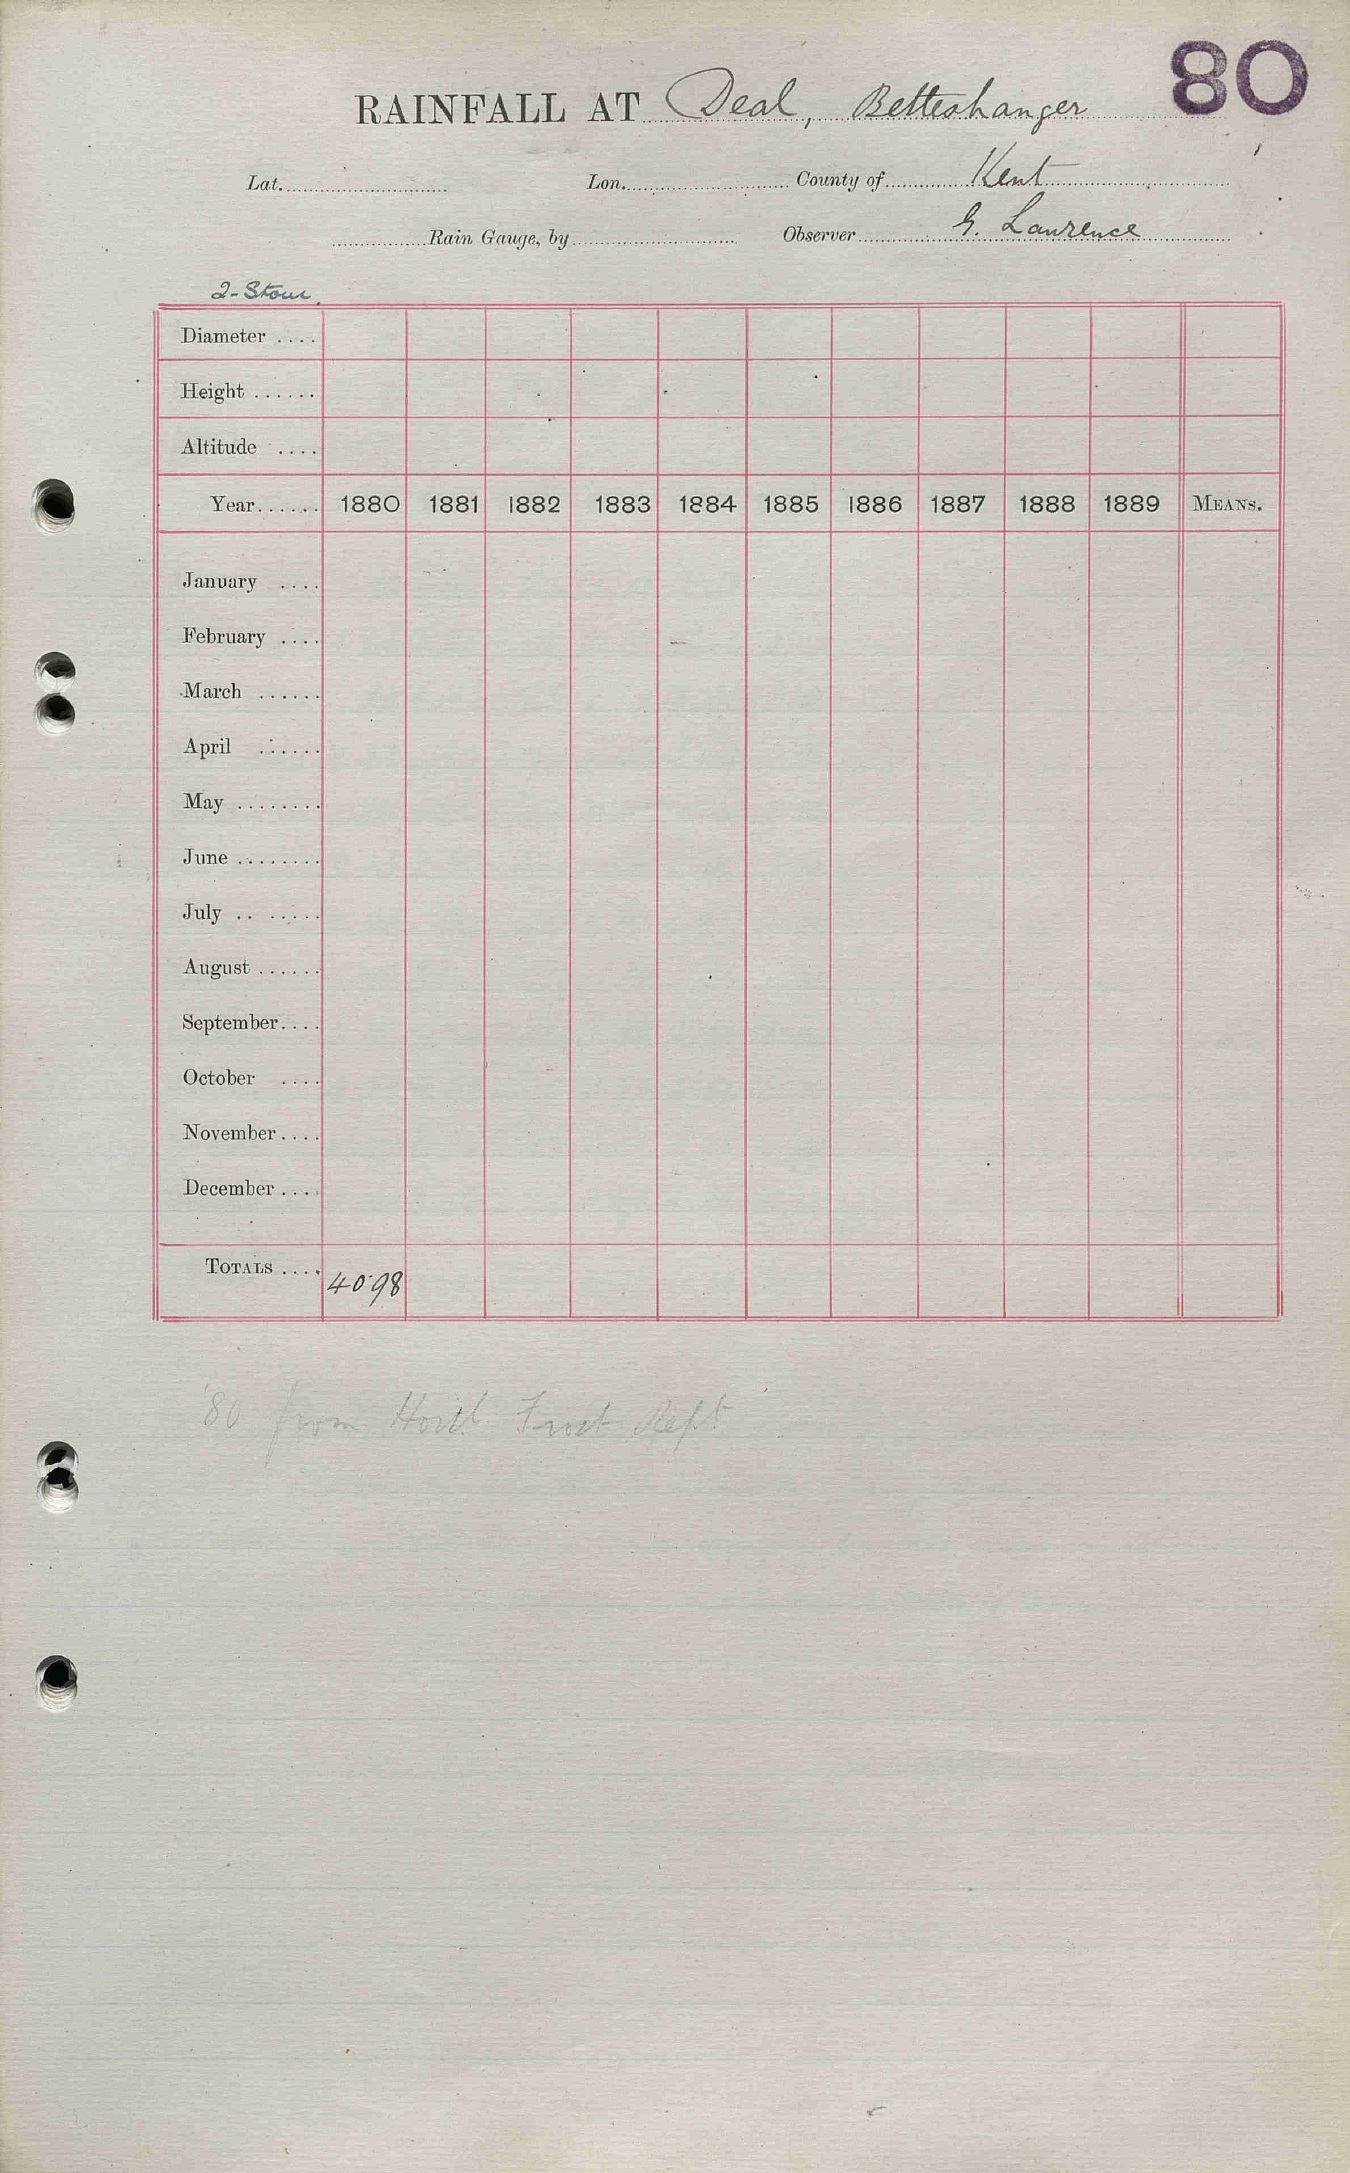 80
RAINFALL AT Deal, Betteshanger
Lat. Lon. County of Kent
Rain Gauge, by Observer G. Lawrence
2-Stour
Diameter ....
Height ......
Altitude ....
Year...... 1880 1881 1882 1883 1884 1885 1886 1887 1888 1889 MEANS.
January ....
February ....
March ......
April ......
May ........
June ........
July .. .....
August ......
September....
October ....
November....
December ....
TOTALS .... 40·98
'80 from Hortl Frost Rept